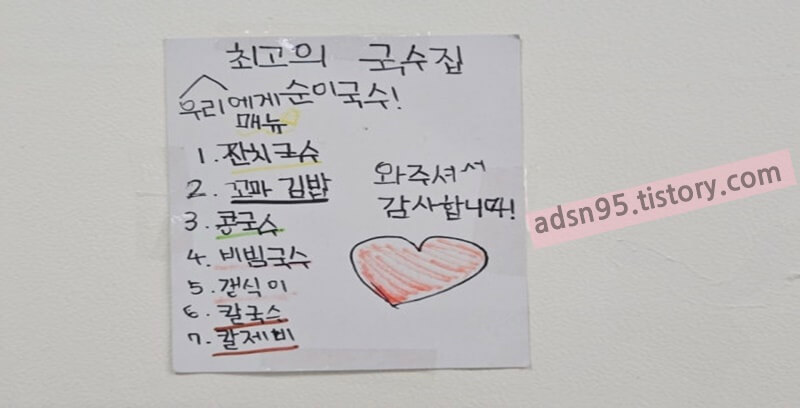 최고의 국수집
우리에게 순이국수!
메뉴
1. 잔치국수
2. 꼬마 김밥
3. 콩국수
4. 비빔국수
5. 갱식이
6. 칼국수
7. 칼제비
와주셔서
감사합니다!
adsn95.tistory.com